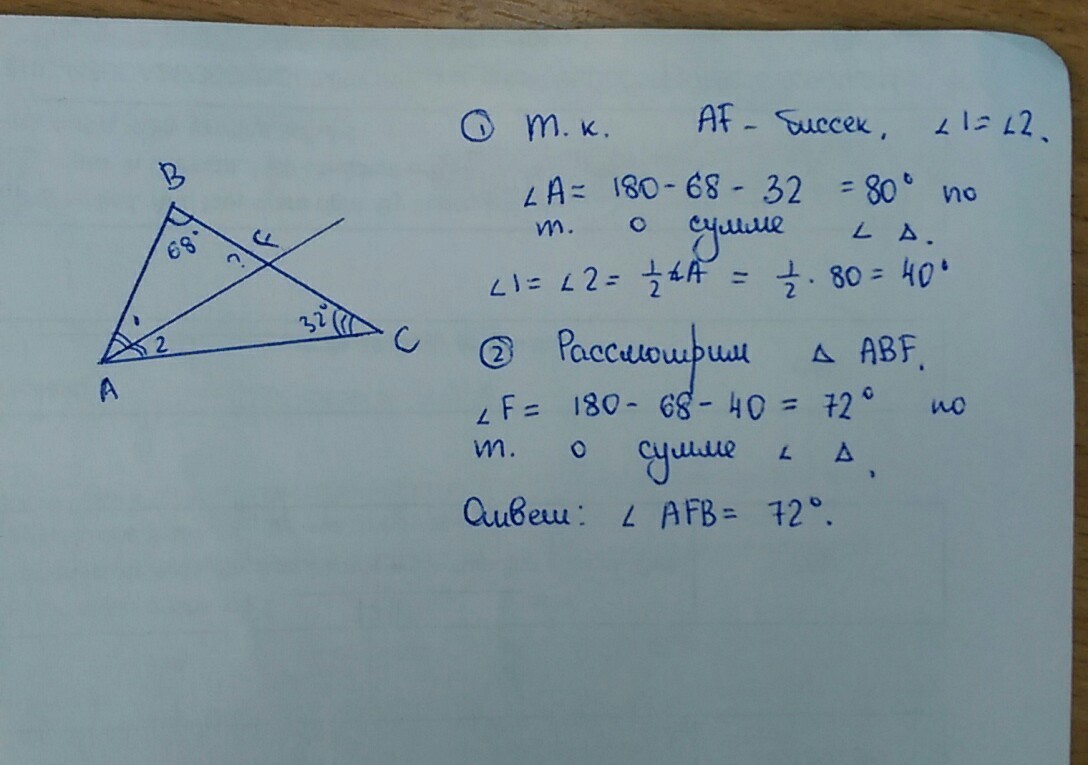 B
68°
?
F
1
2
32°
C
A
① т. к. AF - биссек, ∠1 = ∠2.
∠A = 180 - 68 - 32 = 80° по
т. о сумме ∠ Δ.
∠1 = ∠2 = 1/2 ∠A = 1/2 · 80 = 40°
② Рассмотрим Δ ABF.
∠F = 180 - 68 - 40 = 72° по
т. о сумме ∠ Δ.
Ответ: ∠ AFB = 72°.